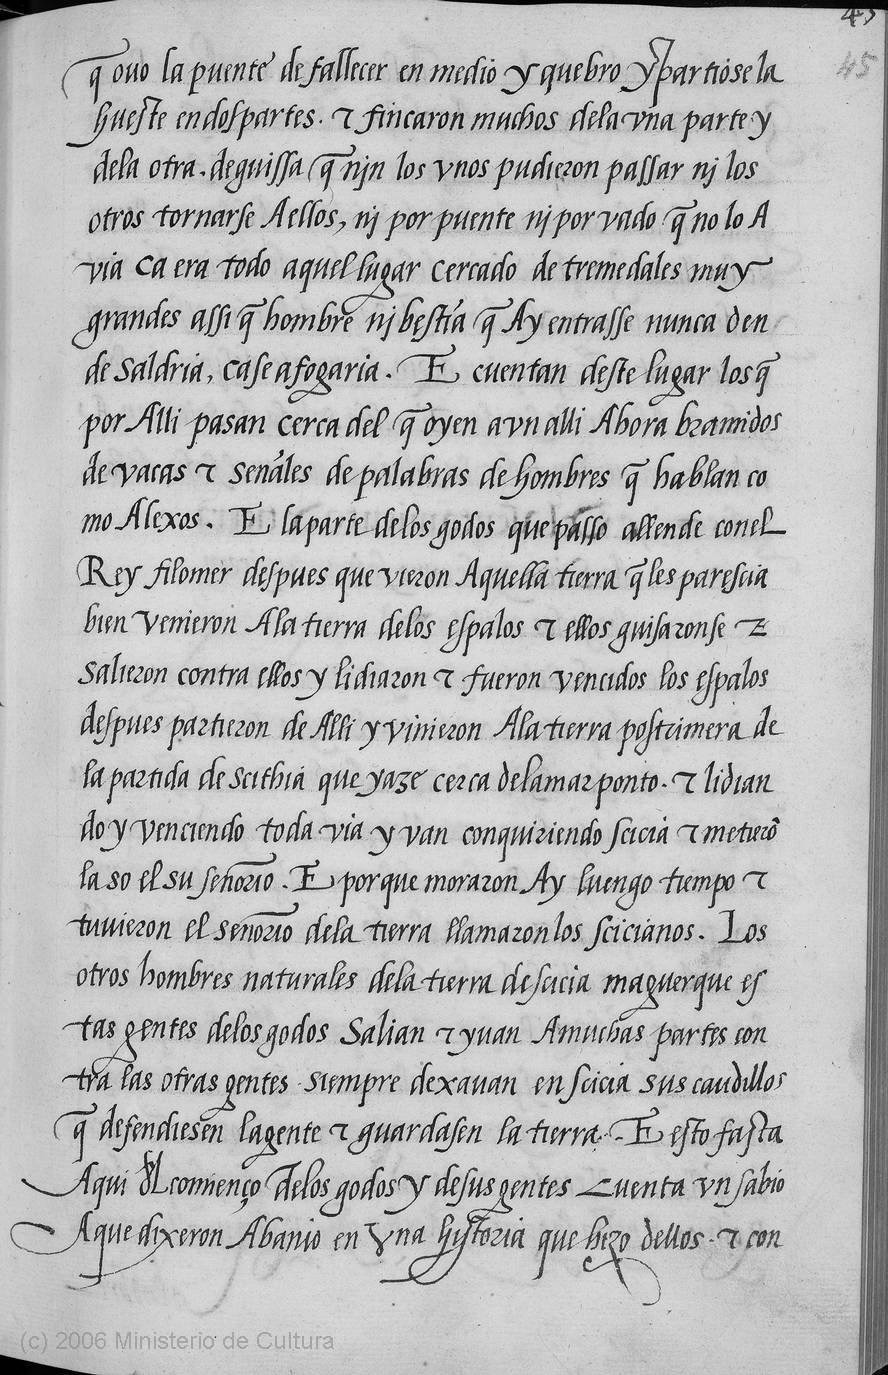 45
45
q̃ ouo la puente de fallecer en medio y quebro y partiose la
hueste en dos partes. τ fincaron muchos dela vna parte y
dela otra. de guissa q̃ njn los vnos pudieron passar nj los
otros tornarse A ellos, nj por puente nj por vado q̃ no lo A
via ca era todo aquel lugar cercado de tremedales muy
grandes assi q̃ hombre nj bestia q̃ Ay entrasse nunca den
de saldria, ca se afogaria. E cuentan deste lugar los q̃
por Alli pasan cerca del q̃ oyen avn alli Ahora bramidos
de vacas τ senãles de palabras de hombres q̃ hablan co
mo Alexos. E la parte de los godos que passo allende con el
Rey filomer despues que vieron Aquella tierra q̃ les parescia
bien Venieron Ala tierra delos espalos τ ellos guisaronse τ
salieron contra ellos y lidiaron τ fueron vencidos los espalos
despues partieron de Alli y vinieron Ala tierra postrimera de
la partida de scithia que yaze cerca dela mar ponto. τ lidian
do y venciendo toda via y van conquiriendo scicia τ metierõ
la so el su señorio. E porque moraron Ay luengo tiempo τ
tuuieron el señorio dela tierra llamaron los scicianos. Los
otros hombres naturales dela tierra de scicia maguer que es
tas gentes delos godos salian τ yuan A muchas partes con
tra las otras gentes siempre dexauan en scicia sus caudillos
q̃ defendiesen la gente τ guardasen la tierra. E esto fasta
Aqui dl comienço delos godos y de sus gentes cuenta vn sabio
A que dixeron Abanio en Vna hystoria que hizo dellos. τ con
(c) 2006 Ministerio de Cultura